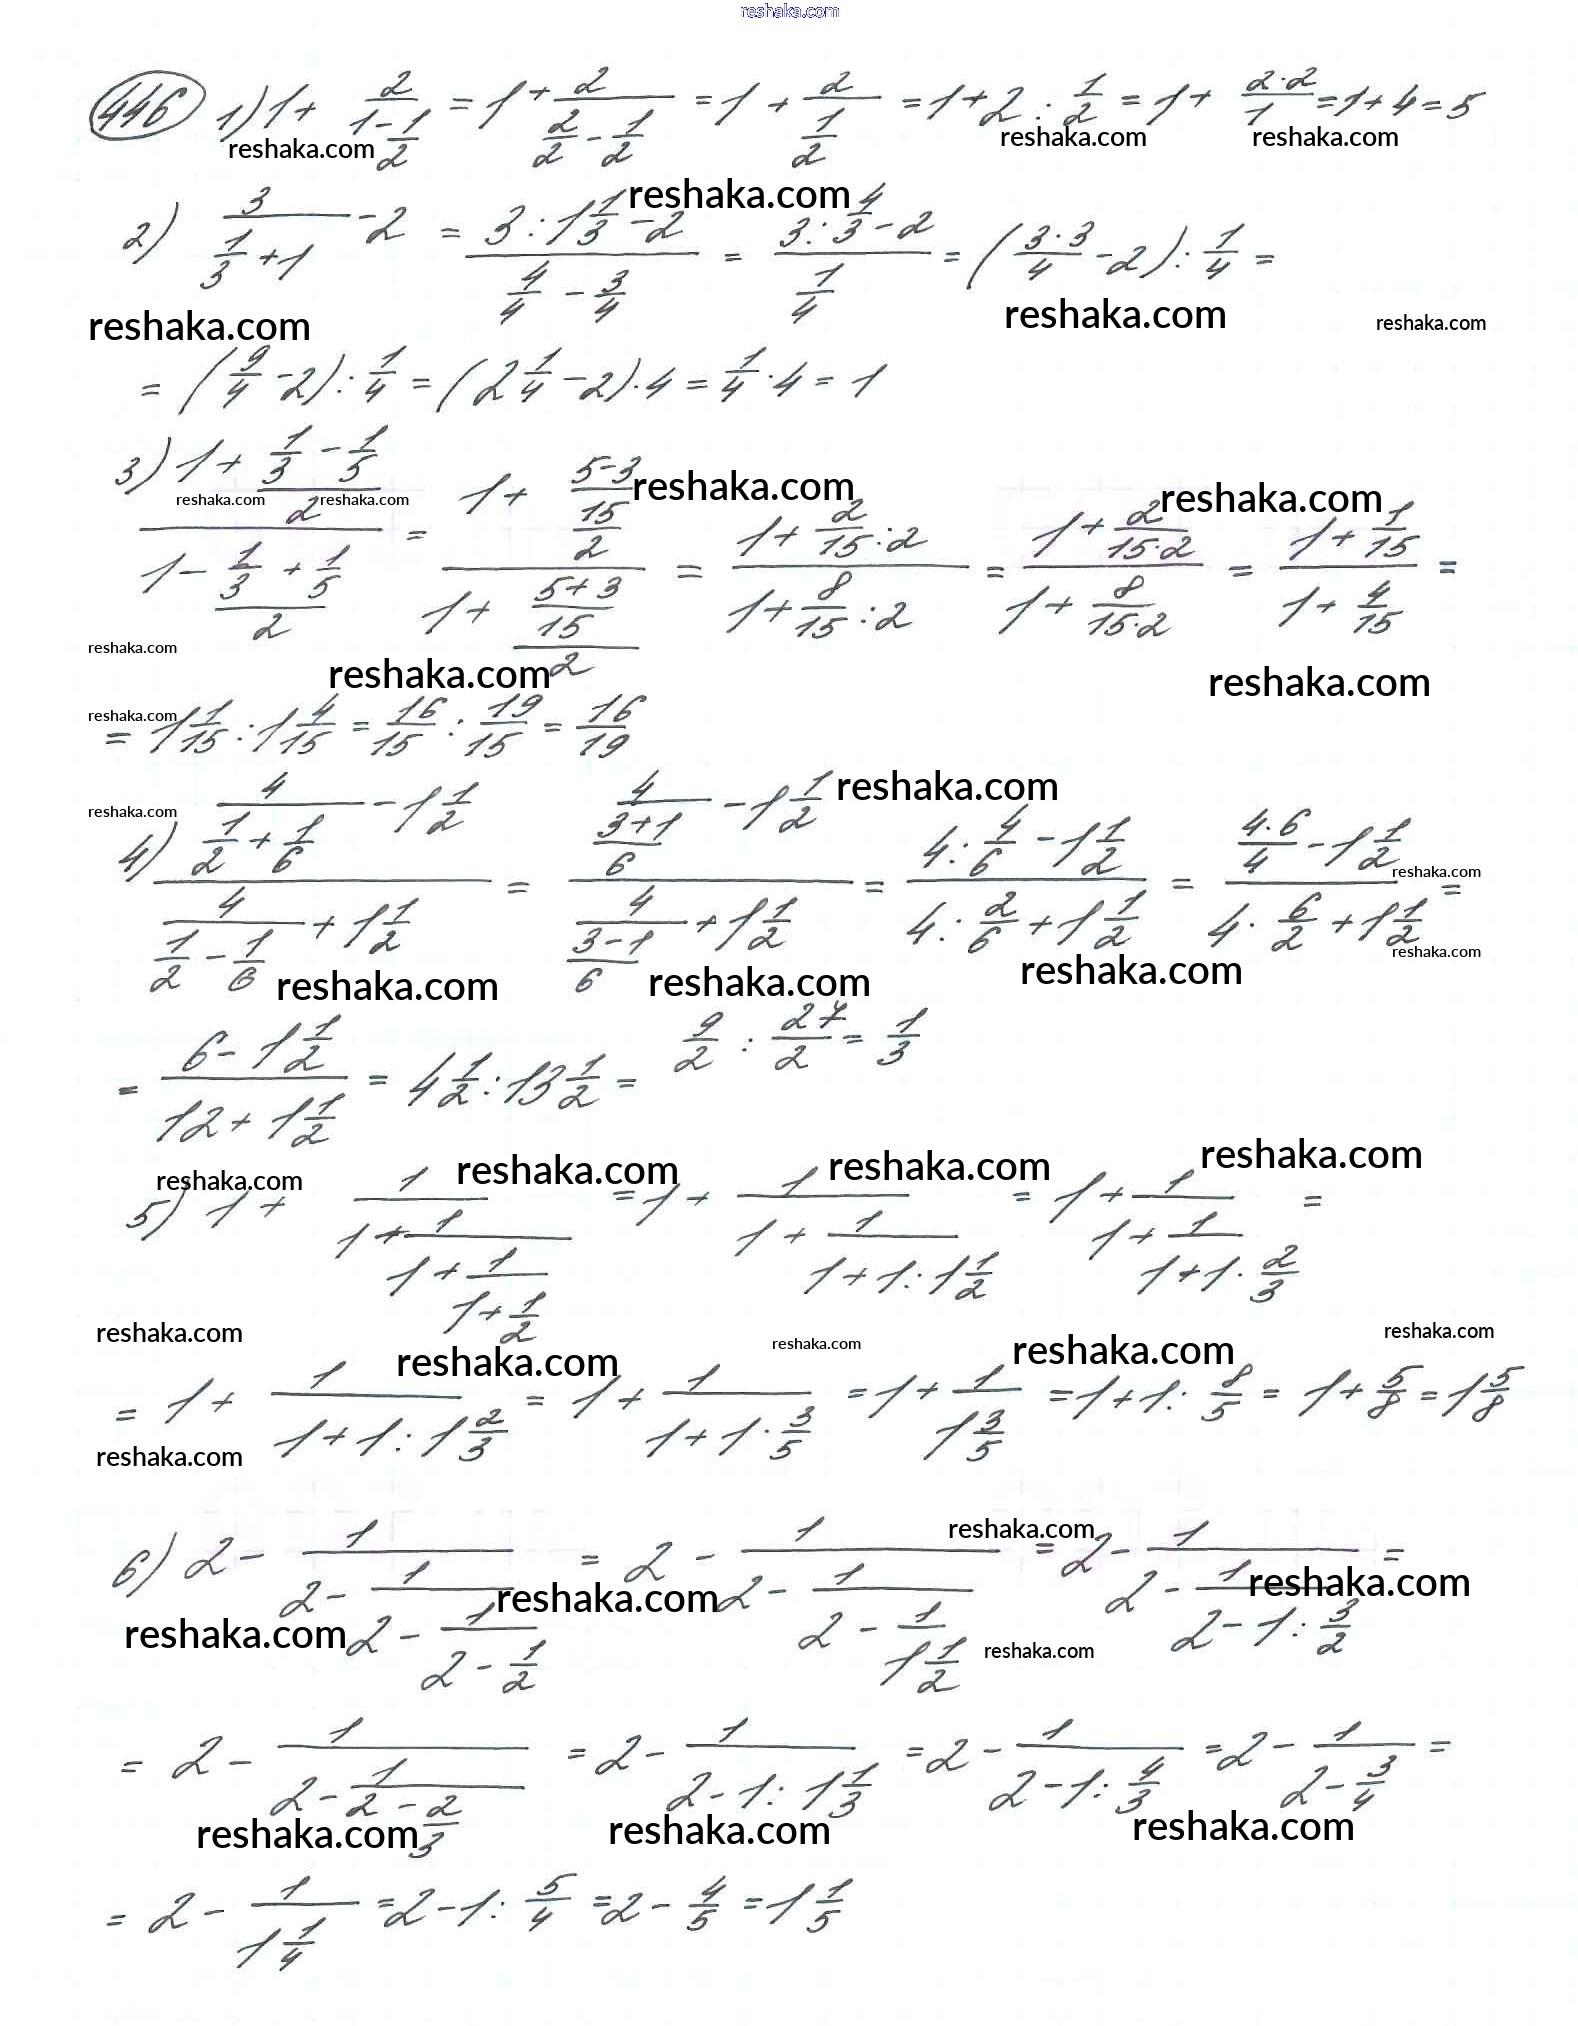 reshaka.com
446 1) 1 + 2/(1 - 1/2) = 1 + 2/(2/2 - 1/2) = 1 + 2/(1/2) = 1 + 2 : 1/2 = 1 + (2·2)/1 = 1 + 4 = 5
reshaka.com reshaka.com reshaka.com
reshaka.com
2) 3/(1/3 + 1) - 2 = (3 : 1 1/3 - 2)/(4/4 - 3/4) = (3 : 4/3 - 2)/(1/4) = ((3·3)/4 - 2) : 1/4 =
reshaka.com reshaka.com reshaka.com
= (9/4 - 2) : 1/4 = (2 1/4 - 2) · 4 = 1/4 · 4 = 1
3) (1 + (1/3 - 1/5)/2)/(1 - (1/3 + 1/5)/2) = (1 + ((5-3)/15)/2)/(1 + ((5+3)/15)/2) = (1 + 2/15 : 2)/(1 + 8/15 : 2) = (1 + 2/(15·2))/(1 + 8/(15·2)) = (1 + 1/15)/(1 + 4/15) =
reshaka.com reshaka.com reshaka.com reshaka.com
reshaka.com reshaka.com reshaka.com
reshaka.com
= 1 1/15 : 1 4/15 = 16/15 : 19/15 = 16/19
reshaka.com reshaka.com
4) (4/(1/2 + 1/6) - 1 1/2)/(4/(1/2 - 1/6) + 1 1/2) = (4/((3+1)/6) - 1 1/2)/(4/((3-1)/6) + 1 1/2) = (4 : 4/6 - 1 1/2)/(4 : 2/6 + 1 1/2) = ((4·6)/4 - 1 1/2)/(4 · 6/2 + 1 1/2) =
reshaka.com
reshaka.com reshaka.com reshaka.com reshaka.com
= (6 - 1 1/2)/(12 + 1 1/2) = 4 1/2 : 13 1/2 = 9/2 : 27/2 = 1/3
reshaka.com reshaka.com reshaka.com reshaka.com
5) 1 + 1/(1 + 1/(1 + 1/(1 + 1/2))) = 1 + 1/(1 + 1/(1 + 1 : 1 1/2)) = 1 + 1/(1 + 1/(1 + 1 · 2/3)) =
reshaka.com reshaka.com reshaka.com reshaka.com reshaka.com
= 1 + 1/(1 + 1 : 1 2/3) = 1 + 1/(1 + 1 · 3/5) = 1 + 1/(1 3/5) = 1 + 1 : 8/5 = 1 + 5/8 = 1 5/8
reshaka.com
reshaka.com
6) 2 - 1/(2 - 1/(2 - 1/(2 - 1/2))) = 2 - 1/(2 - 1/(2 - 1/(1 1/2))) = 2 - 1/(2 - 1/(2 - 1 : 3/2)) =
reshaka.com reshaka.com reshaka.com reshaka.com
= 2 - 1/(2 - 1/(2 - 2/3)) = 2 - 1/(2 - 1 : 1 1/3) = 2 - 1/(2 - 1 : 4/3) = 2 - 1/(2 - 3/4) =
reshaka.com reshaka.com reshaka.com
= 2 - 1/(1 1/4) = 2 - 1 : 5/4 = 2 - 4/5 = 1 1/5